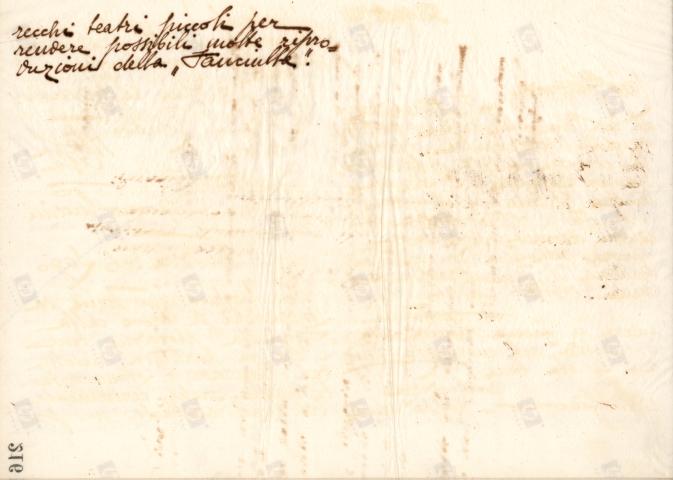 recchi teatri piccoli per
rendere possibili molte ripro-
duzioni della „Fanciulla".
216